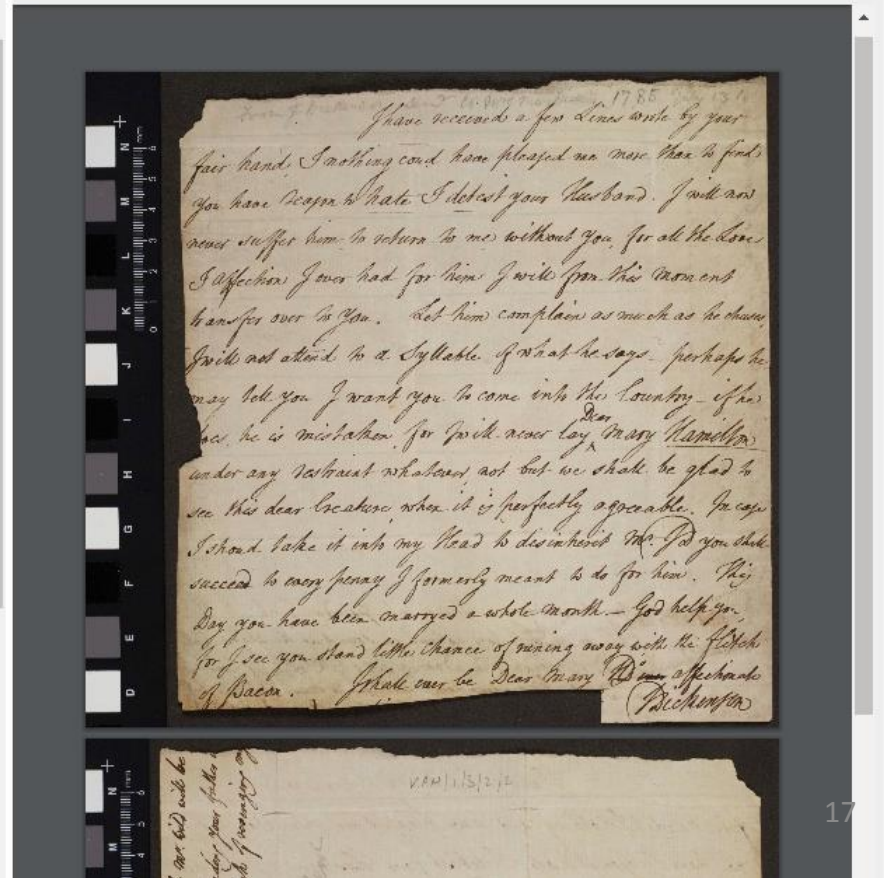 1785
I have received a few Lines wrote by your
fair hand, & nothing coud have pleased me more than to find
you have reason to hate & detest your Husband. I will now
never suffer him to return to me without you, for all the Love
& Affection I ever had for him I will from this moment
transfer over to You. Let him complain as much as he chuses,
I will not attend to a Syllable of what he says - perhaps he
may tell you I want you to come into the Country - if he
does, he is mistaken, for I will never lay
Dear
Mary Hamilton
under any restraint whatever, not but we shall be glad to
see this dear Creature when it is perfectly agreeable. In case
I shoud take it into my Head to disinherit Mr. J:D you shall
succeed to every penny I formerly meant to do for him. This
Day you have been marryed a whole month. - God help you,
for I see you stand little Chance of runing away with the flitch
of Bacon. I shall ever be Dear Mary affectionate
Dickenson
N
M
L
K
J
I
H
G
F
E
D
6
5
4
3
2
1
0
VAN/1/3/2/2
Mr. Wild will be
your father
of
N
M
6
5
4
17